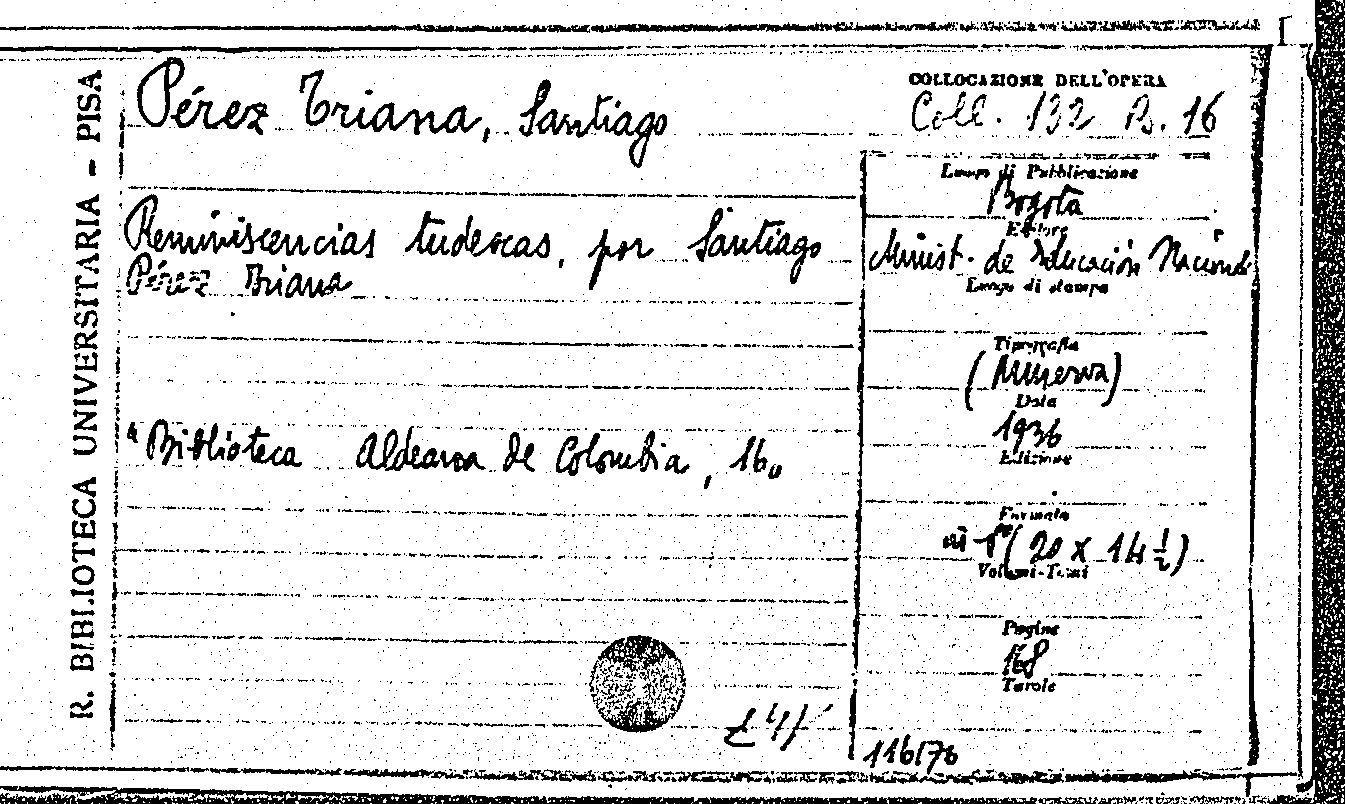 R. BIBLIOTECA UNIVERSITARIA - PISA
Pérez Triana, Santiago
COLLOCAZIONE DELL'OPERA
Coll. 132 B. 16
Reminiscencias tudescas, por Santiago
Pérez Triana
"Biblioteca Aldeana de Colombia, 16"
Luogo di Pubblicazione
Bogotá
Editore
Minist. de Educación Nacional
Luogo di stampa
Tipografia
(Minerva)
Data
1936
Edizione
Formato
in 8° (20 x 14 1/2)
Volumi-Tomi
Pagine
168
Tavole
116176